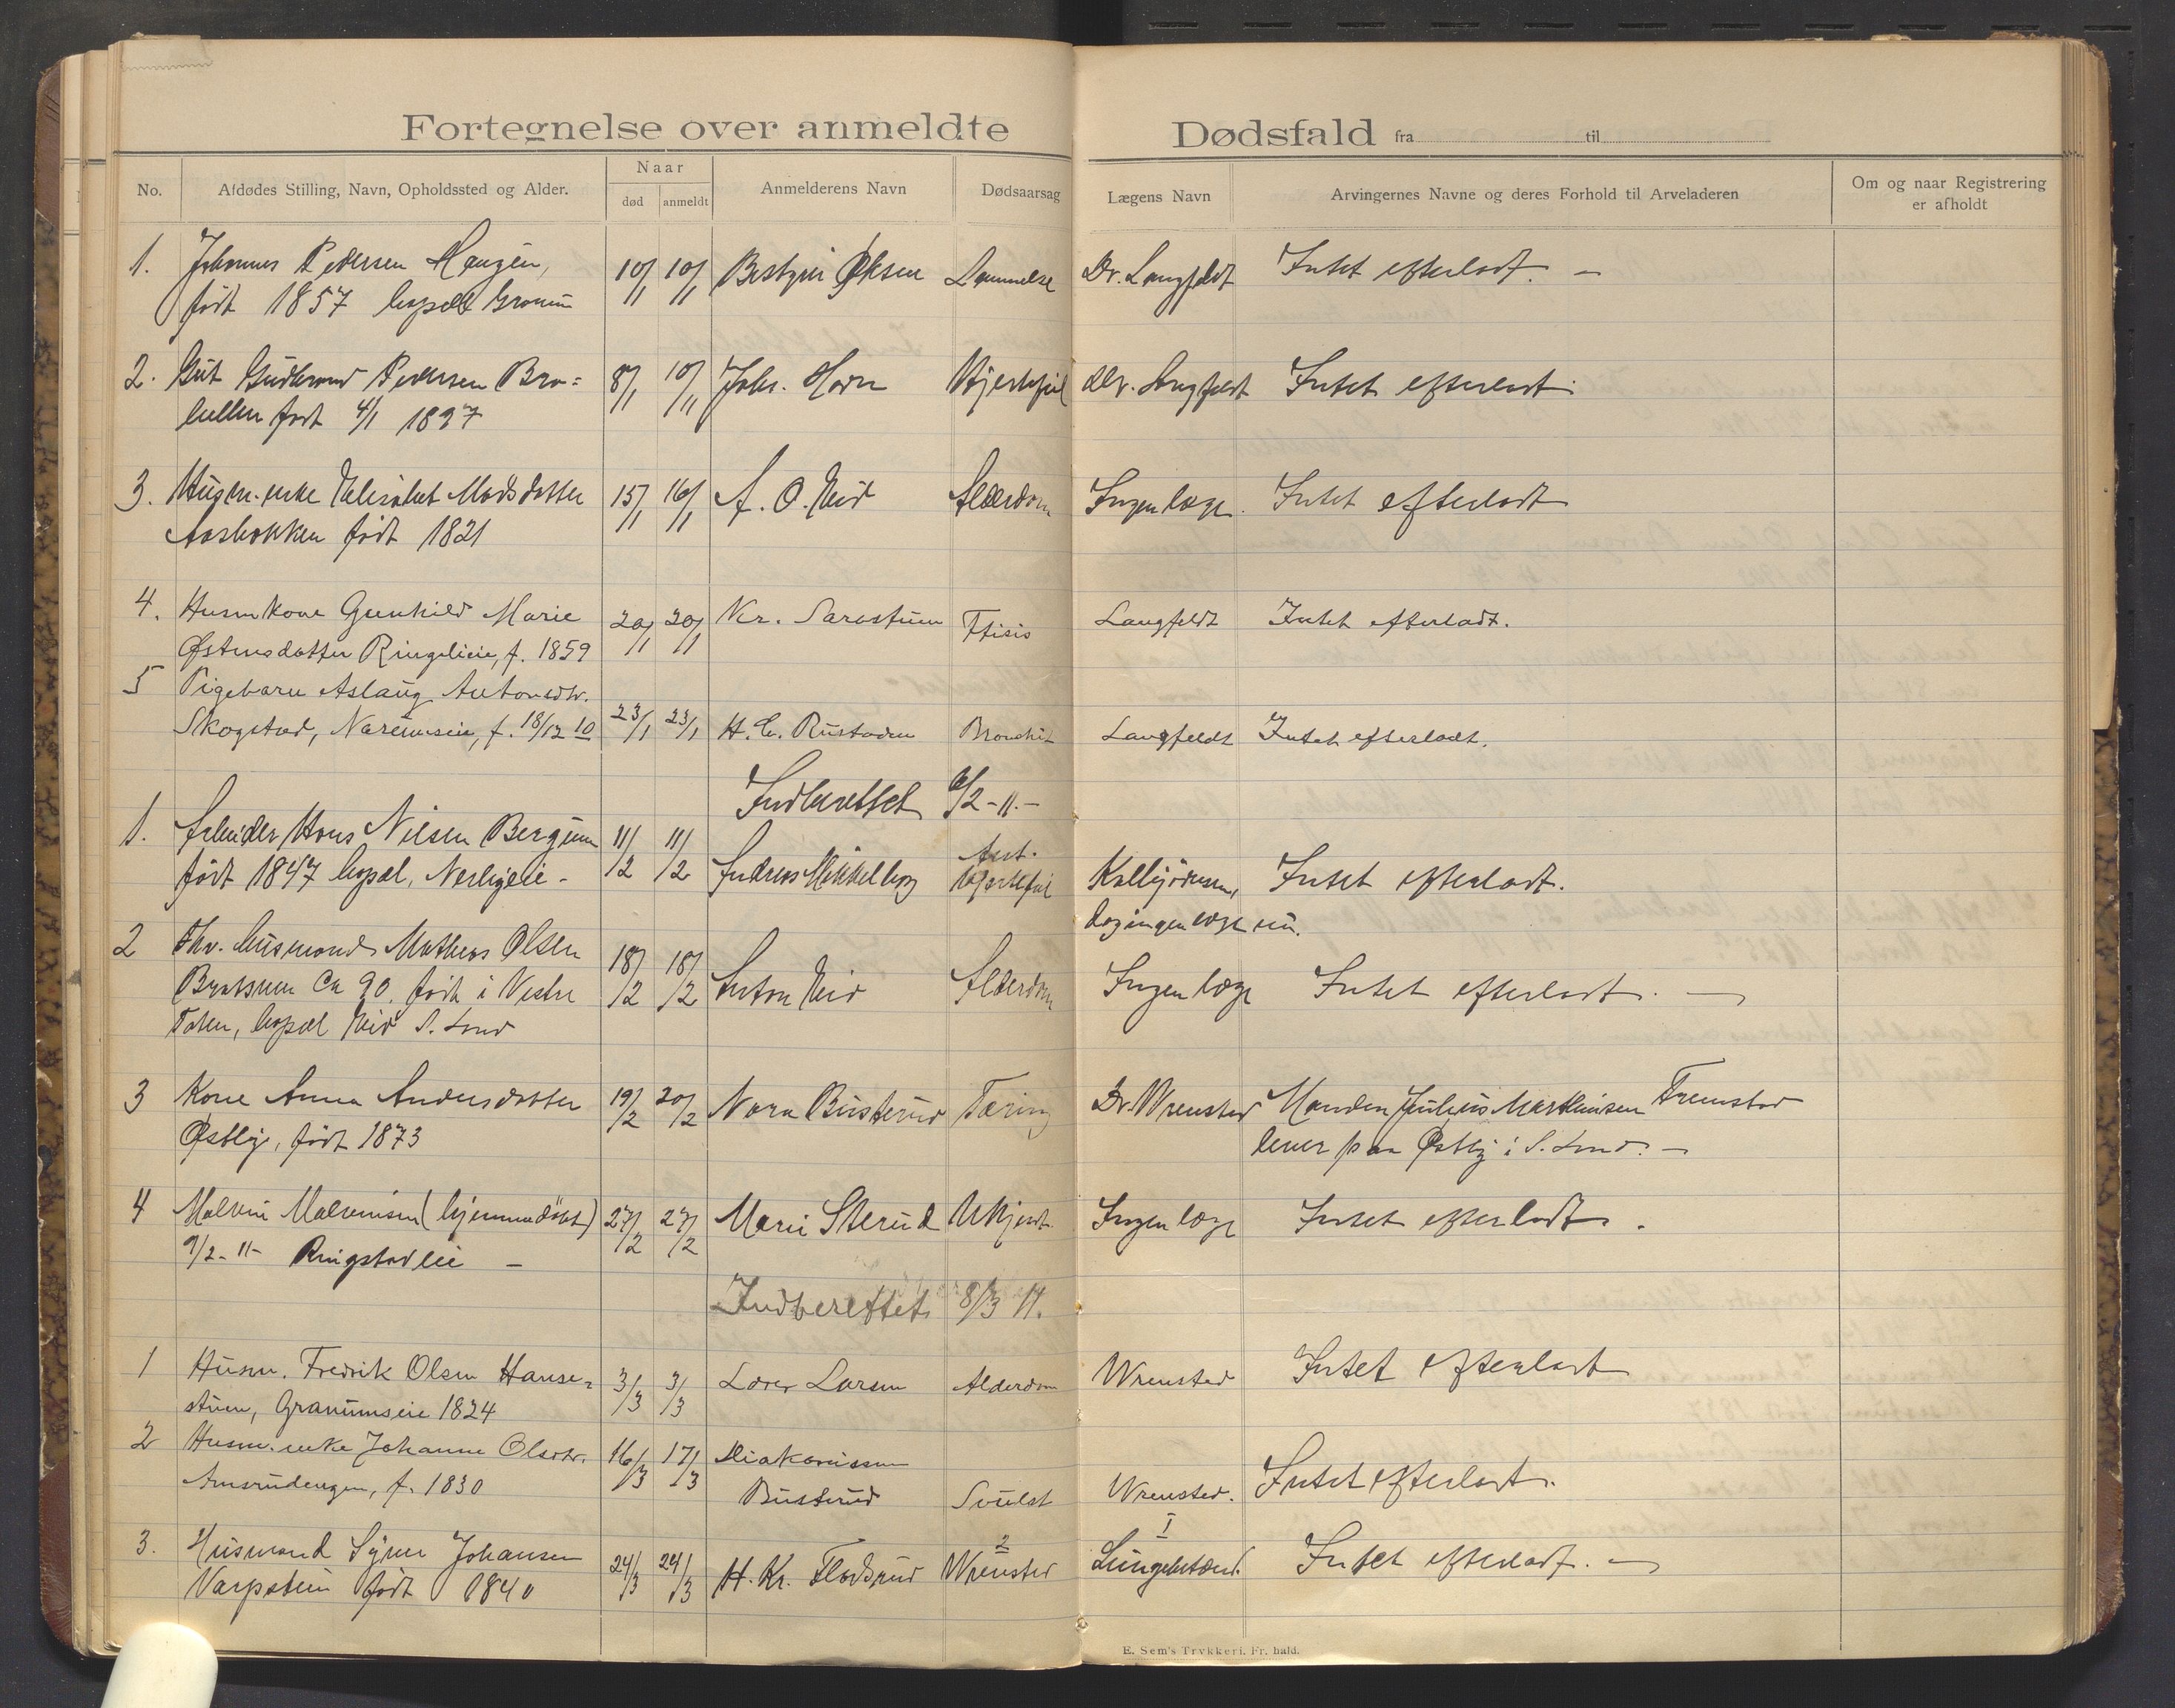 Fortegnelse over anmeldte Dødsfald fra til
No. Afdødes Stilling, Navn, Opholdssted og Alder. Naar Anmelderens Navn Dødsaarsag Lægens Navn Arvingernes Navne og deres Forhold til Arveladeren Om og naar Registrering
død anmeldt er afholdt
1. Johannes Pedersen Haugen, 10/1 10/1 Bestyrer Øksen Lammelse Dr. Langfeldt Intet efterladt. -
født 1857 bopæl Granum
2. Gut Gudbrand Pedersen Bra= 8/1 10/1 Johs. Horn Hjertefeil Dr. Langfeldt Intet efterladt.
født 4/1 1897
3. Husm.enke Elisabet Madsdatter 15/1 16/1 A. O. Eid Alderdom Ingen læge. Intet efterladt
født 1821
4. Husmkone Gunhild Marie 20/1 20/1 Kr. Ftisis Langfeldt Intet efterladt.
Østensdatter Ringelieie, f. 1859
5 Pigebarn Aslaug Antonsdtr.
Skogstad, f. 18/12 10 23/1 23/1 H. C. Rustaden Bronchit Langfeldt Intet efterladt.
Indberettet 6/2-11.-
1. Arbeider Hans Nilsen Bergum 11/2 11/2 Ant.
født 1847 bopæl, Andreas Mikkelborg Hjertefeil Intet efterladt.
dog ingen læge nu.
2 Fhv. husmand Mathias Olsen 18/2 18/2 Anton Eid Alderdom Ingen læge Intet efterladt. -
Ca 90. født i Vestre
Toten, bopæl Eid S. Land
3 Kone Anna Andersdatter 19/2 20/2 Nora Busterud Tæring Dr. Wrensted Manden Julius Martinisen Fremstad
Østby, født 1873 lever paa Østby i S. Land. -
4 Malvin Malvinsen (hjemmedøbt) 27/2 27/2 Marie Sterud Ukjendt Ingen læge Intet efterladt.
9/2-11- Ringstadeie -
Indberettet 8/3 11.
1 Husm. Fredrik Olsen Hanse= 3/3 3/3 Lars Larsen Alderdom Wrensted Intet efterladt
stuen, Granumseie 1824
2 Husm.enke Johanne Olsdtr. 16/3 17/3 Diakonissen
Amrudengen, f. 1830 Busterud Svulst Wrensted. Intet efterladt.
3. Husmand Syver Johansen 24/3 24/3 2 1
født 1840 H. Kr. Wrensted Lungebetænd. Intet efterladt. -
E. Sem's Trykkeri, Fr. hald.